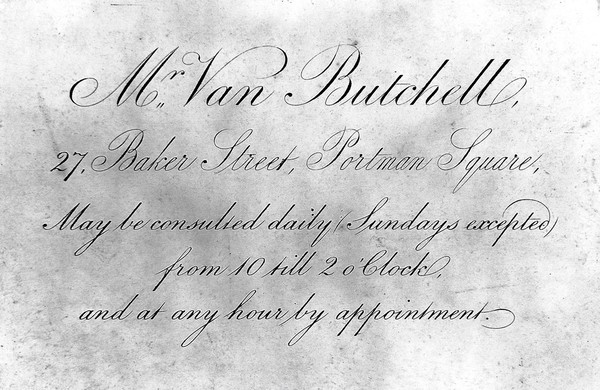 Mr. Van Butchell,
27, Baker Street, Portman Square,
May be consulted daily (Sundays excepted)
from 10 till 2 o'Clock,
and at any hour by appointment